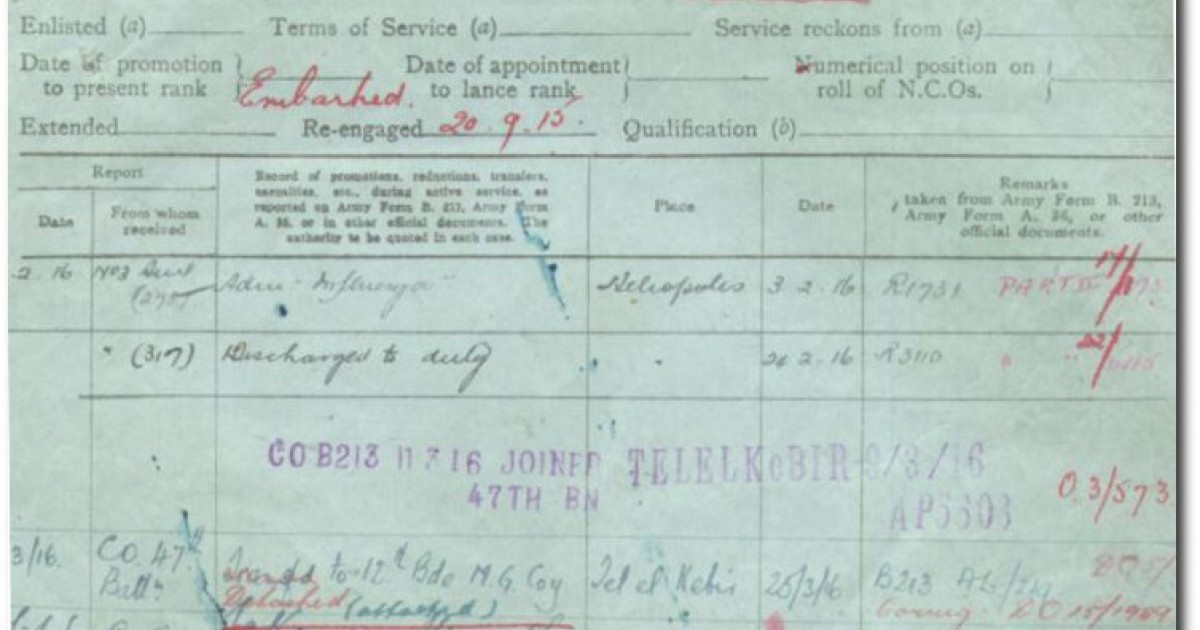 Enlisted (a) Terms of Service (a) Service reckons from (a)
Date of promotion to present rank Date of appointment to lance rank Numerical position on roll of N.C.Os.
Embarked.
Extended Re-engaged 20.9.15. Qualification (b)
Report
Date
From whom received
Record of promotions, reductions, transfers,
casualties, etc., during active service, as
reported on Army Form B. 213, Army Form
A. 36, or in other official documents. The
authority to be quoted in each case.
Place
Date
Remarks
taken from Army Form B. 213,
Army Form A. 36, or other
official documents.
2.16 Influenza Heliopolis 3.2.16 R1731 PART II
" (317) Discharged to duty 2.16 R3110
CO B213 11 3 16 JOINED TELELKEBIR 9/3/16
47TH BN AP5303
O.3/573
3/16. CO. 47 Battn to 12th Bde M.G. Coy Tel el Kebir 25/3/16 B213
(attached) DO 15/1989